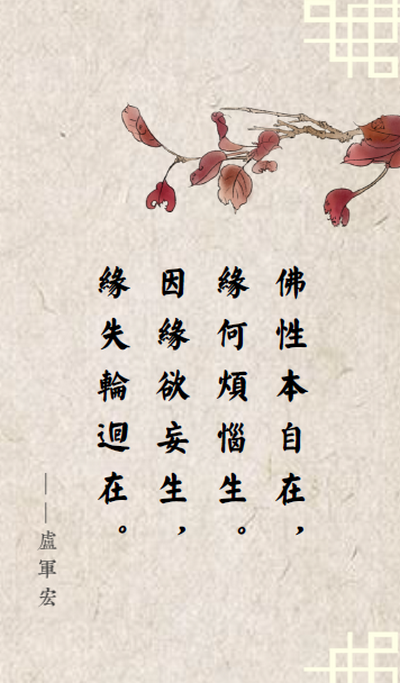 佛性本自在，
緣何煩惱生。
因緣欲妄生，
緣失輪迴在。
——盧軍宏